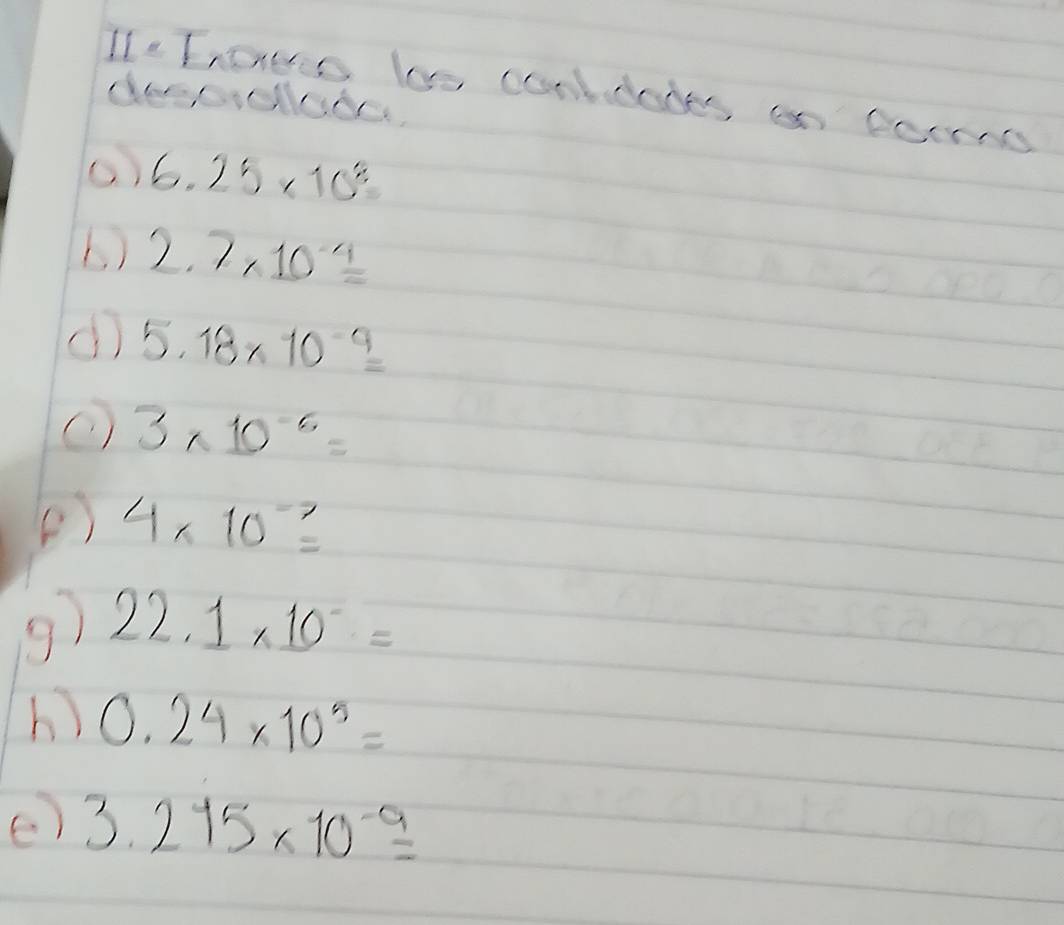 II. Expresa las cantidades en forma
desarollada.
a) 6.25 x 10⁸=
b) 2.7 x 10⁻⁴=
d) 5.18 x 10⁻⁹=
c) 3 x 10⁻⁶=
f) 4 x 10⁻⁷=
g) 22.1 x 10⁻ =
h) 0.24 x 10⁵=
e) 3.215 x 10⁻⁹=